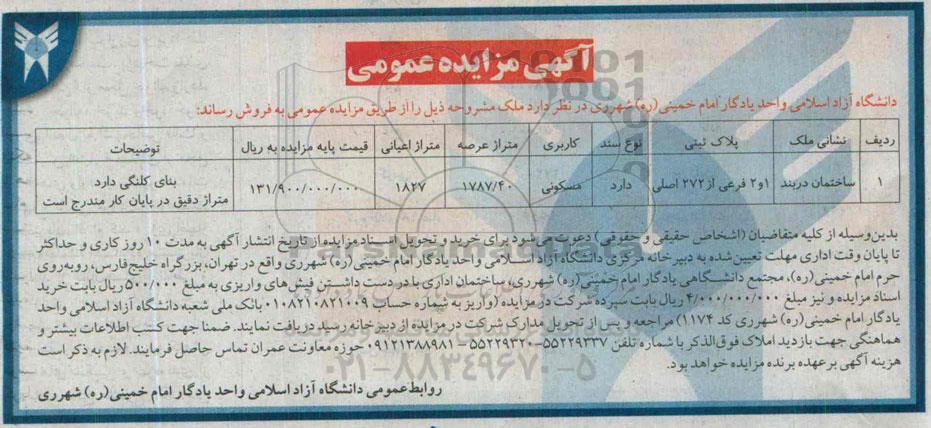 آگهی مزایده عمومی
دانشگاه آزاد اسلامی واحد یادگار امام خمینی (ره) شهرری در نظر دارد ملک مشروحه ذیل را از طریق مزایده عمومی به فروش رساند:
ردیف نشانی ملک پلاک ثبتی نوع سند کاربری متراژ عرصه متراژ اعیانی قیمت پایه مزایده به ریال توضیحات
۱ ساختمان دربند ۱و۲ فرعی از ۲۷۲ اصلی دارد مسکونی ۱۷۸۷/۴۰ ۱۸۲۷ ۱۳۱/۹۰۰/۰۰۰/۰۰۰ بنای کلنگی دارد
متراژ دقیق در پایان کار مندرج است
بدین‌وسیله از کلیه متقاضیان (اشخاص حقیقی و حقوقی) دعوت می‌شود برای خرید و تحویل اسناد مزایده از تاریخ انتشار آگهی به مدت ۱۰ روز کاری و حداکثر
تا پایان وقت اداری مهلت تعیین شده به دبیرخانه مرکزی دانشگاه آزاد اسلامی واحد یادگار امام خمینی (ره) شهرری واقع در تهران، بزرگراه خلیج‌فارس، روبه‌روی
حرم امام خمینی (ره)، مجتمع دانشگاهی یادگار امام خمینی (ره) شهرری، ساختمان اداری با در دست داشتن فیش‌های واریزی به مبلغ ۵۰۰/۰۰۰ ریال بابت خرید
اسناد مزایده و نیز مبلغ ۴/۰۰۰/۰۰۰/۰۰۰ ریال بابت سپرده شرکت در مزایده (واریز به شماره حساب ۰۱۰۸۲۱۰۸۲۱۰۰۹ بانک ملی شعبه دانشگاه آزاد اسلامی واحد
یادگار امام خمینی (ره) شهرری کد ۱۱۷۴) مراجعه و پس از تحویل مدارک شرکت در مزایده از دبیرخانه رسید دریافت نمایند. ضمنا جهت کسب اطلاعات بیشتر و
هماهنگی جهت بازدید املاک فوق‌الذکر با شماره تلفن ۵۵۲۲۹۳۳۷-۵۵۲۲۹۳۲۰-۰۹۱۲۱۳۸۸۹۸۱ حوزه معاونت عمران تماس حاصل فرمایند. لازم به ذکر است
هزینه آگهی بر عهده برنده مزایده خواهد بود.
۰۲۱-۸۸۳۴۹۶۷۰-۵
روابط عمومی دانشگاه آزاد اسلامی واحد یادگار امام خمینی (ره) شهرری